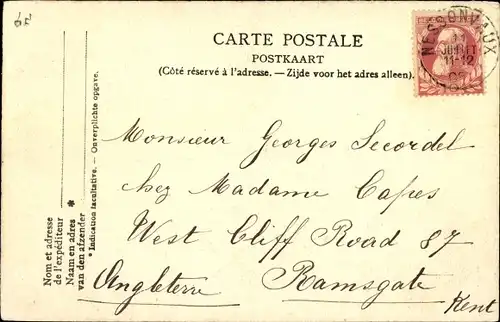 CARTE POSTALE
POSTKAART
(Côté réservé à l'adresse. — Zijde voor het adres alleen).
NESSONVAUX
11
JUILLET
11-12
Nom et adresse
de l'expéditeur
Naam en adres *
van den afzender
* Indication facultative. — Onverplichte opgave.
Monsieur Georges Secordel
chez Madame Capes
West Cliff Road 87
Angleterre Ramsgate
Kent